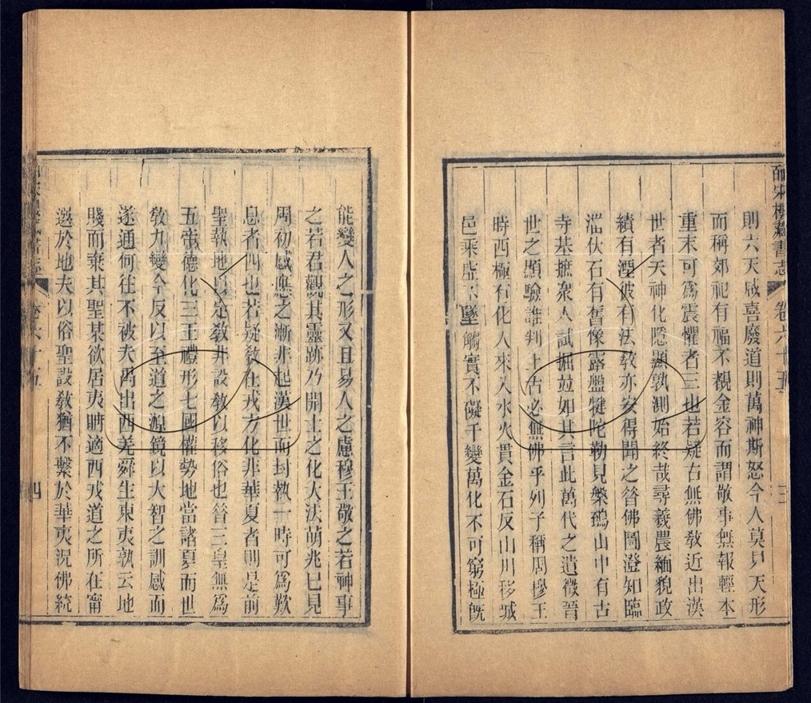 則六天咸喜廢道則萬神斯怒今人莫見天形
而稱郊祀有福不覩金容而謂敬事無報輕本
重末可爲震懼者三也若疑古無佛敎近出漢
世者夫神化隱顯孰測始終哉尋羲農緬貌政
績有湮彼有法敎亦安得聞之昔佛圖澄知臨
淄伏石有舊像露盤犍陀勒見槃鵄山中有古
寺基墌衆人試掘竝如其言此萬代之遺徵晉
世之顯驗誰判上古必無佛乎列子稱周穆王
時西極有化人來入水火貫金石反山川移城
邑乘虛不墜觸實不礙千變萬化不可窮極旣
卷六十五
三
能變人之形又且易人之慮穆王敬之若神事
之若君觀其靈跡乃開士之化大法萌兆已見
周初感應之漸非起漢世而封執一時可爲歎
息者四也若疑敎在戎方化非華夏者則是前
聖執地以定敎非設敎以移俗也昔三皇無爲
五帝德化三王禮形七國權勢地當諸夏而世
敎九變今反以至道之源鏡以大智之訓感而
遂通何往不被夫禹出西羌舜生東夷孰云地
賤而棄其聖某欲居夷聃適西戎道之所在甯
選於地夫以俗聖設敎猶不繫於華夷況佛統
四